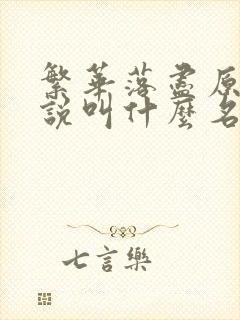 繁華落盡原
說叫什麼名
七言樂